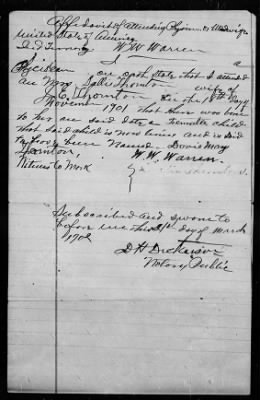 Affidavit of Attending Physician or Midwife
United States of America
I. T. Territory W. W. Warren
I a
Physician on oath state that I attended
on Mrs. Thornton wife of
J. C. Thornton on the 18th day of
November 1901 that there was born
to her on said date a Female child
that said child is now living and is said
to have been Named Dovie May
Thornton.
Witness to Mark W. W. Warren
Subscribed and swone to
before me this day of March
1902
D H Dickason
Notary Public